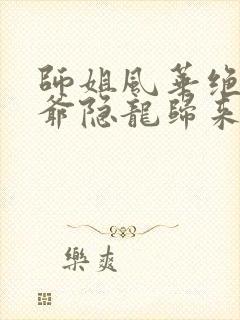 師姐風華绝
爺隐龍歸來
樂爽